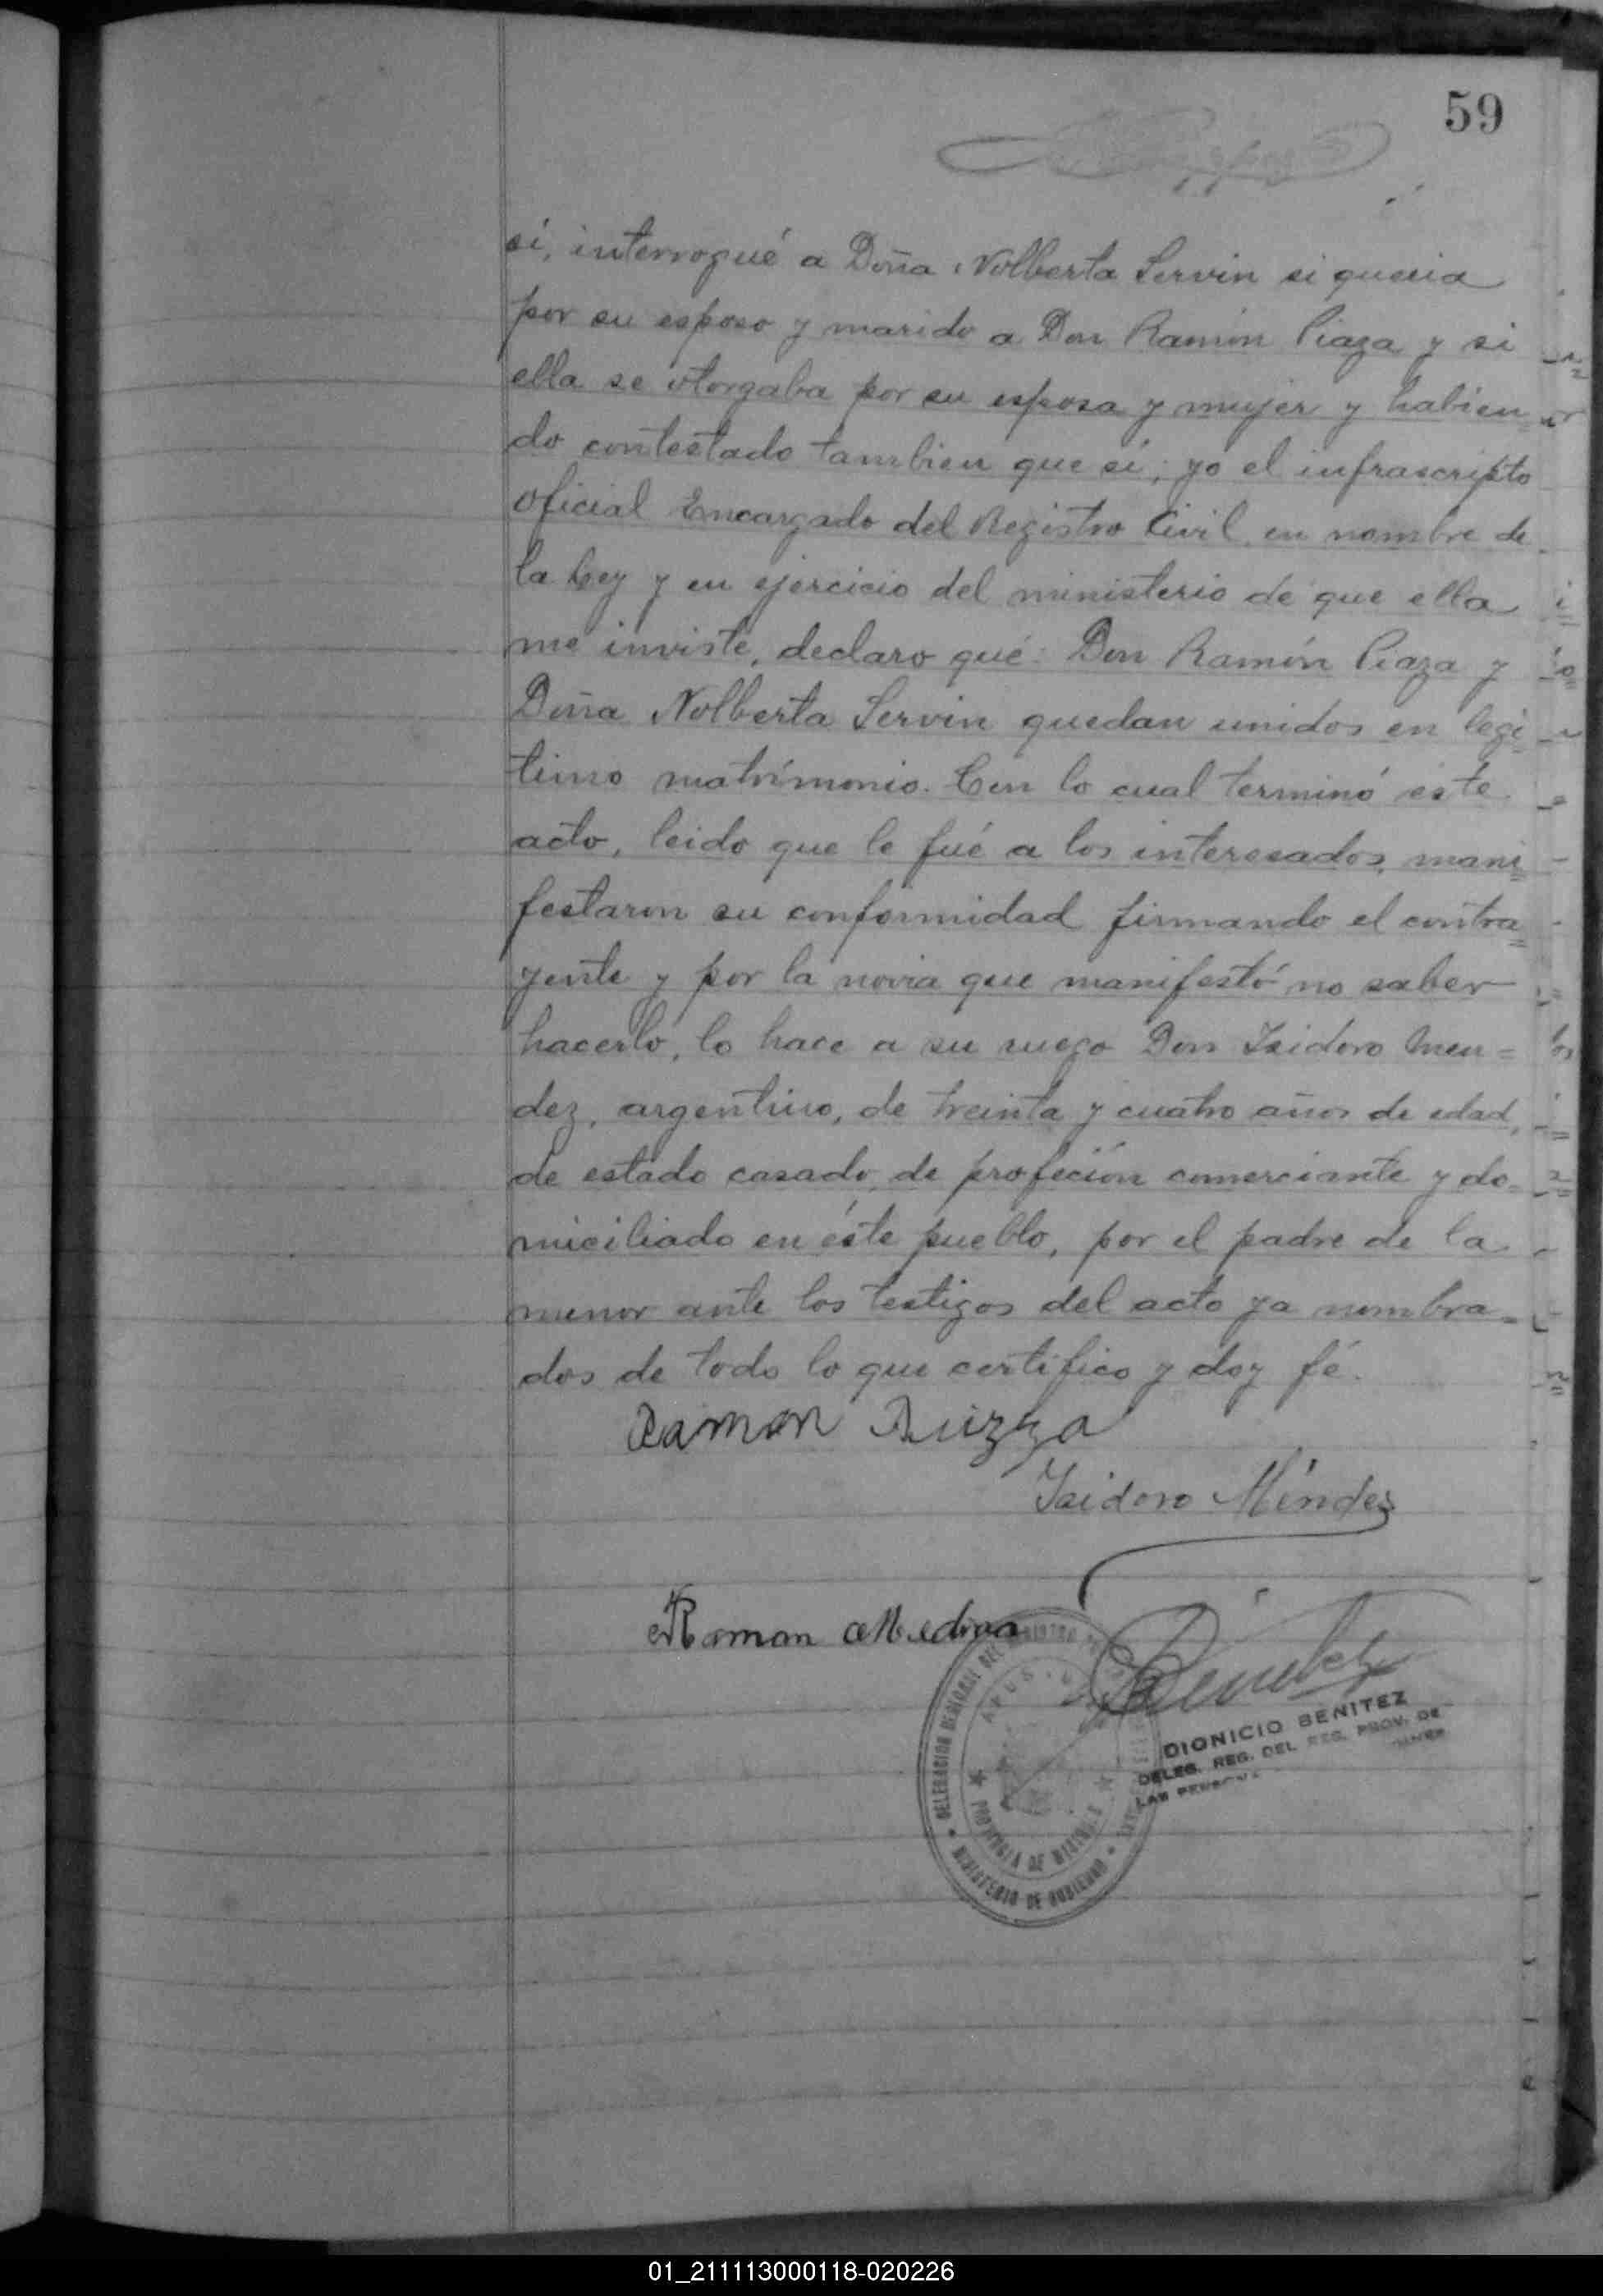 59
sí, interrogué a Doña Nolberta Servin si queria
por su esposo y marido a Don Ramón Piaza y si
ella se otorgaba por su esposa y mujer y habien=
do contestado tambien que sí; yo el infrascripto
oficial Encargado del Registro Civil en nombre de
la Ley y en ejercicio del ministerio de que ella
me inviste, declaro qué: Don Ramón Piaza y
Doña Nolberta Servin quedan unidos en legi=
timo matrimonio. Con lo cual terminó éste
acto, leido que le fué a los interesados, mani=
festaron su conformidad firmando el contra=
yente y por la novia que manifestó no saber
hacerlo, lo hace a su ruego Don Isidoro Men=
dez, argentino, de treinta y cuatro años de edad,
de estado casado, de profeción comerciante y do=
miciliado en éste pueblo, por el padre de la
menor ante los testigos del acto ya nombra=
dos de todo lo que certifico y doy fé.
Ramon
Isidoro Méndez
Ramon Medina
DELEGACION GENERAL DEL REGISTRO
PROVINCIA DE MISIONES
MINISTERIO DE GOBIERNO
DIONICIO BENITEZ
DELEG. REG. DEL REG. PROV. DE
LAS
01_211113000118-020226